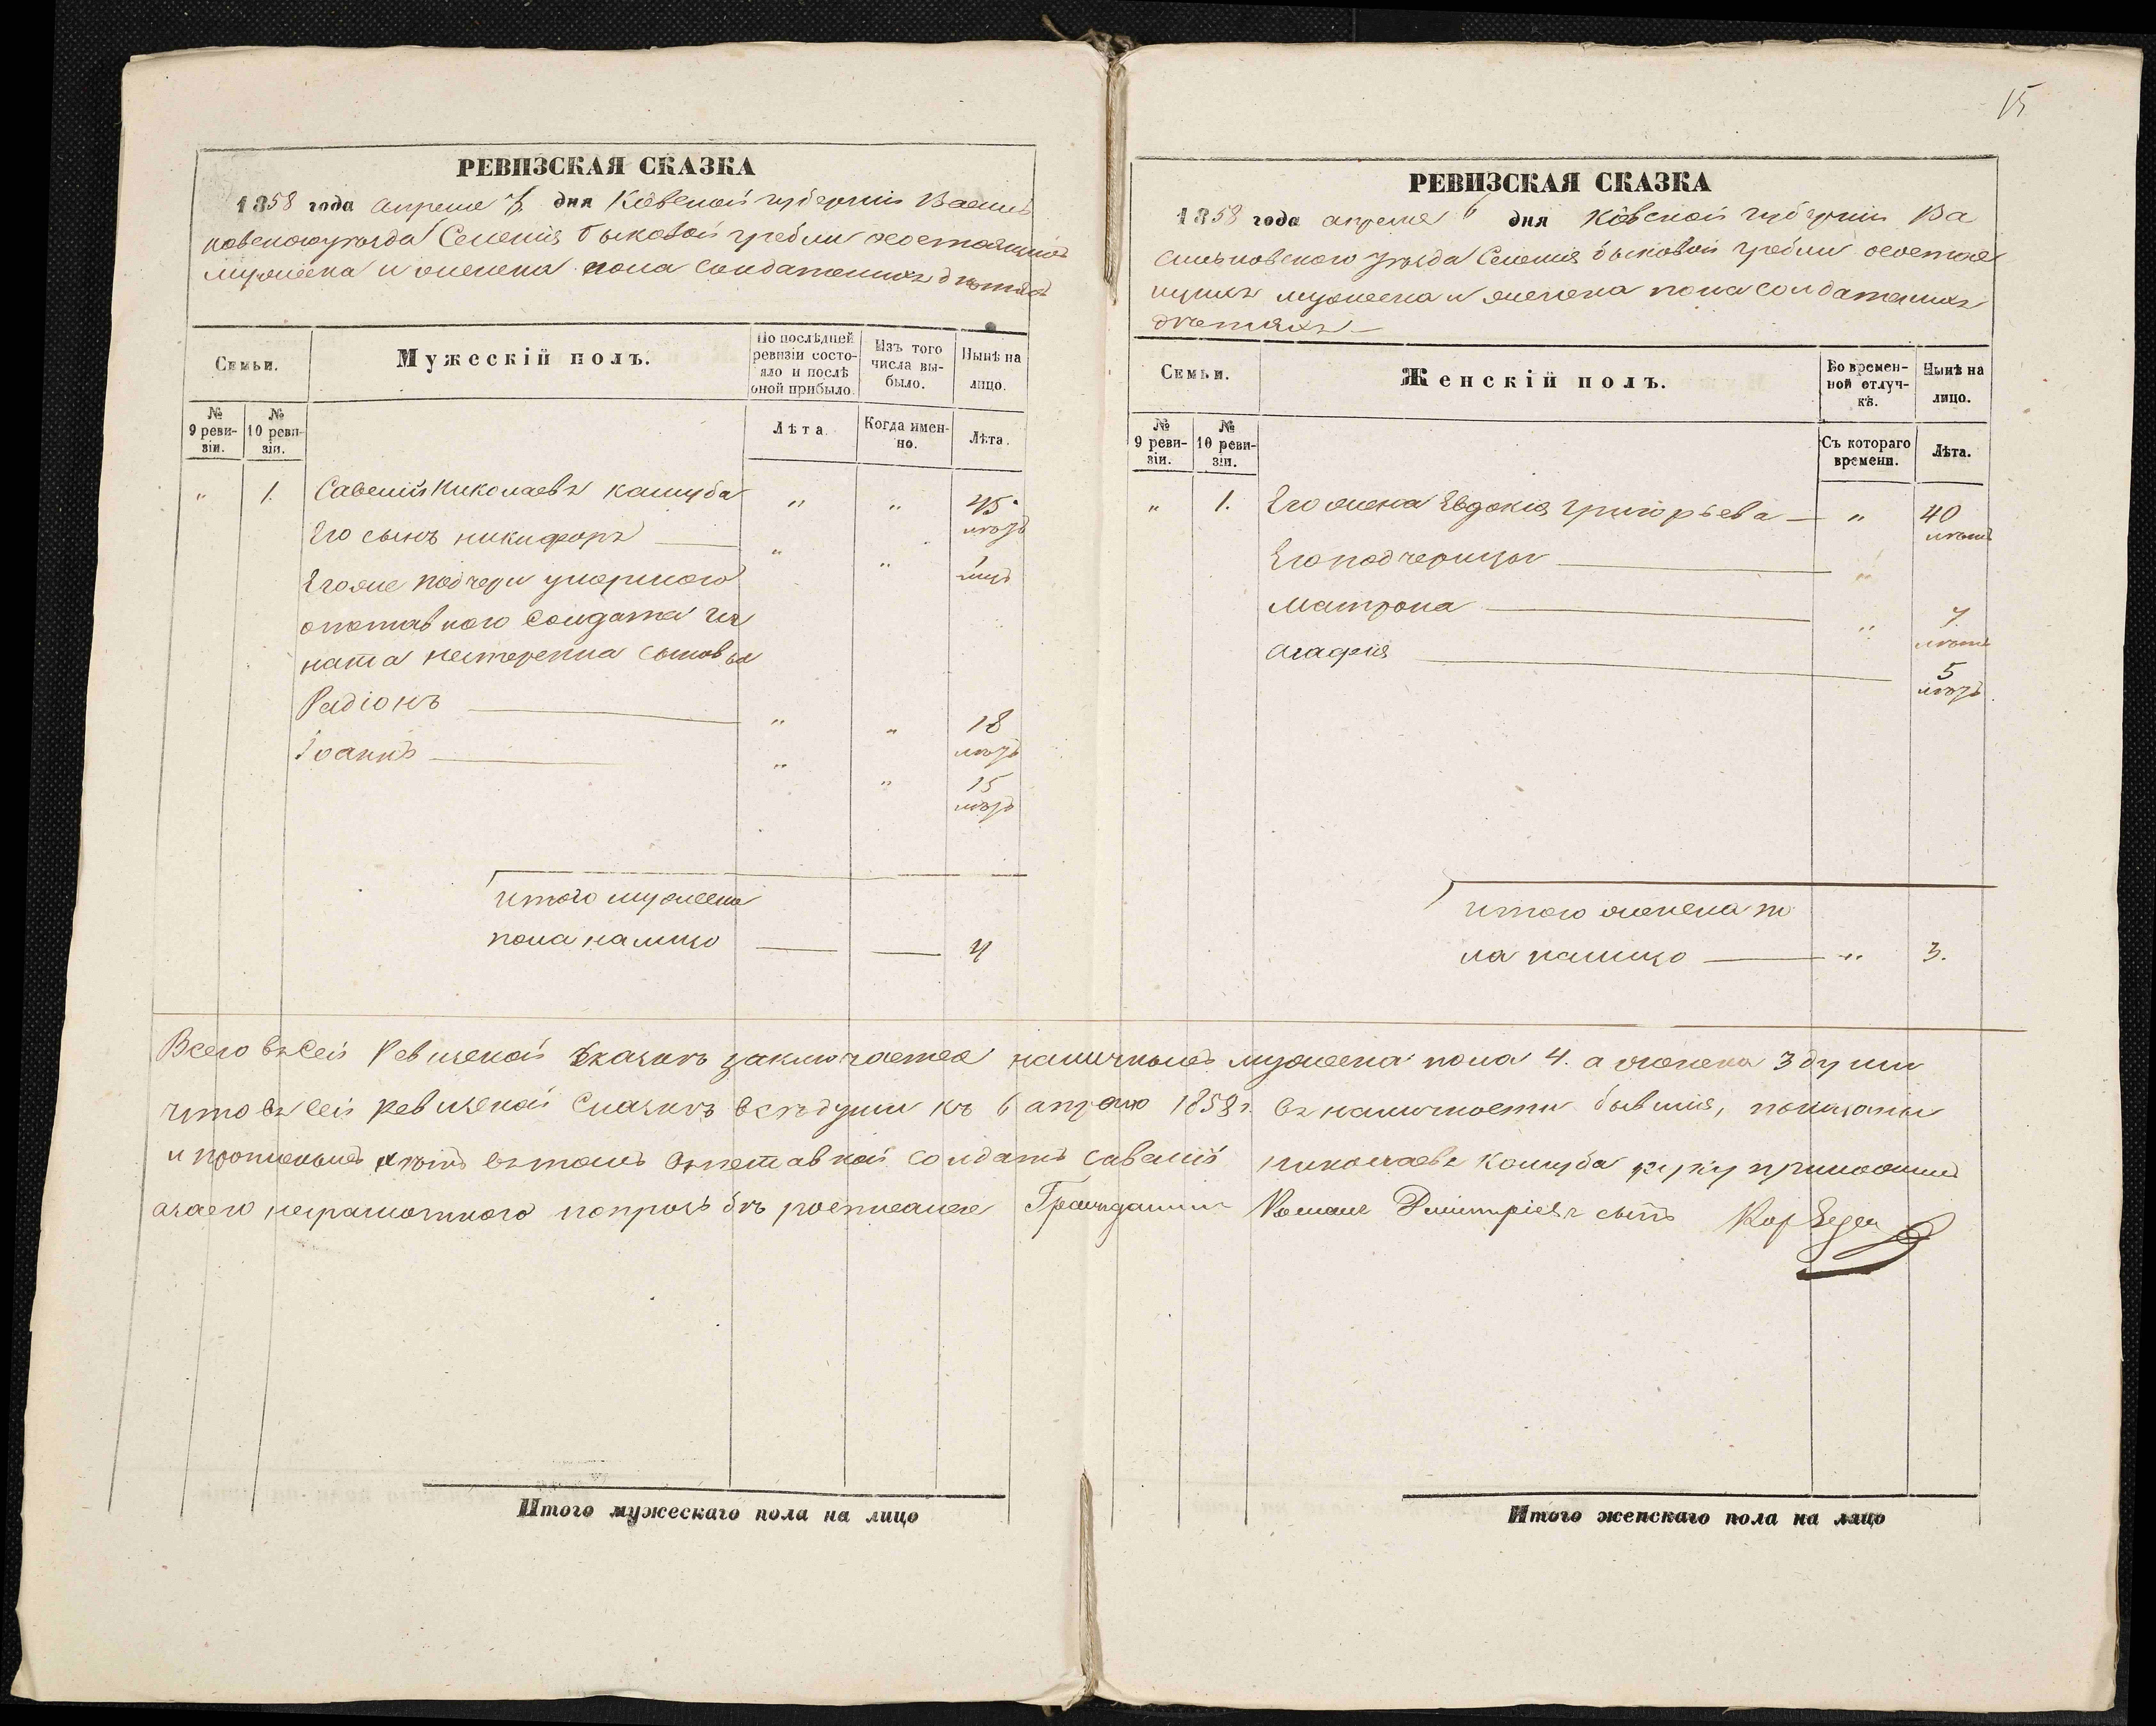 15
РЕВИЗСКАЯ СКАЗКА
1858 года апреля 6 дня Кіевской губерніи Василь
ковского уезда Селенія Быковой гребли о состоящихъ
мужеска и женска пола солдатскихъ детяхъ
Семьи.
Мужескій полъ.
По послѣдней ревизіи состояло и послѣ оной прибыло.
Изъ того числа выбыло.
Нынѣ на лицо.
№ 9 ревизіи.
№ 10 ревизіи.
Лѣта
Когда именно.
Лѣта.
" 1. Савелий Николаевъ кашуба " " 45 летъ
Его сынъ никифоръ " " 1 годъ
Его же подчери умершого
отставного солдата Иг
ната нестерепка сыновья
Радіонъ " " 18 летъ
Іоаннъ " " 15 летъ
Итого мужеска
пола налицо 4
РЕВИЗСКАЯ СКАЗКА
1858 года апреля 6 дня Кіевской губерніи Ва
сильковского уезда Селенія быковой гребли о состоя
щихъ мужеска и женска пола солдатскихъ
детяхъ
Семьи.
Женскій полъ.
Во временной отлучкѣ.
Нынѣ на лицо.
№ 9 ревизіи.
№ 10 ревизіи.
Съ котораго времени.
Лѣта.
" 1. Его жена Евдокія григорьева " 40 летъ
Его подчерицы "
Матрона " 7 летъ
Агафія 5 летъ
Итого женска по
ла налицо " 3.
Всего въ сей Ревизской сказкѣ заключается наличныхъ мужеска пола 4. а женска 3 души
что въ сей ревизской сказкѣ все души къ 6 апрелю 1858 г. въ наличности бывшія, показаны
и пропи летъ въ томъ отставной солдатъ савелий николаевъ Кашуба руку приложилъ
а за его неграмотного по прозьбѣ росписался Гражданинъ Романъ Дмитріевъ сынъ
Итого мужескаго пола на лицо
Итого женскаго пола на лицо